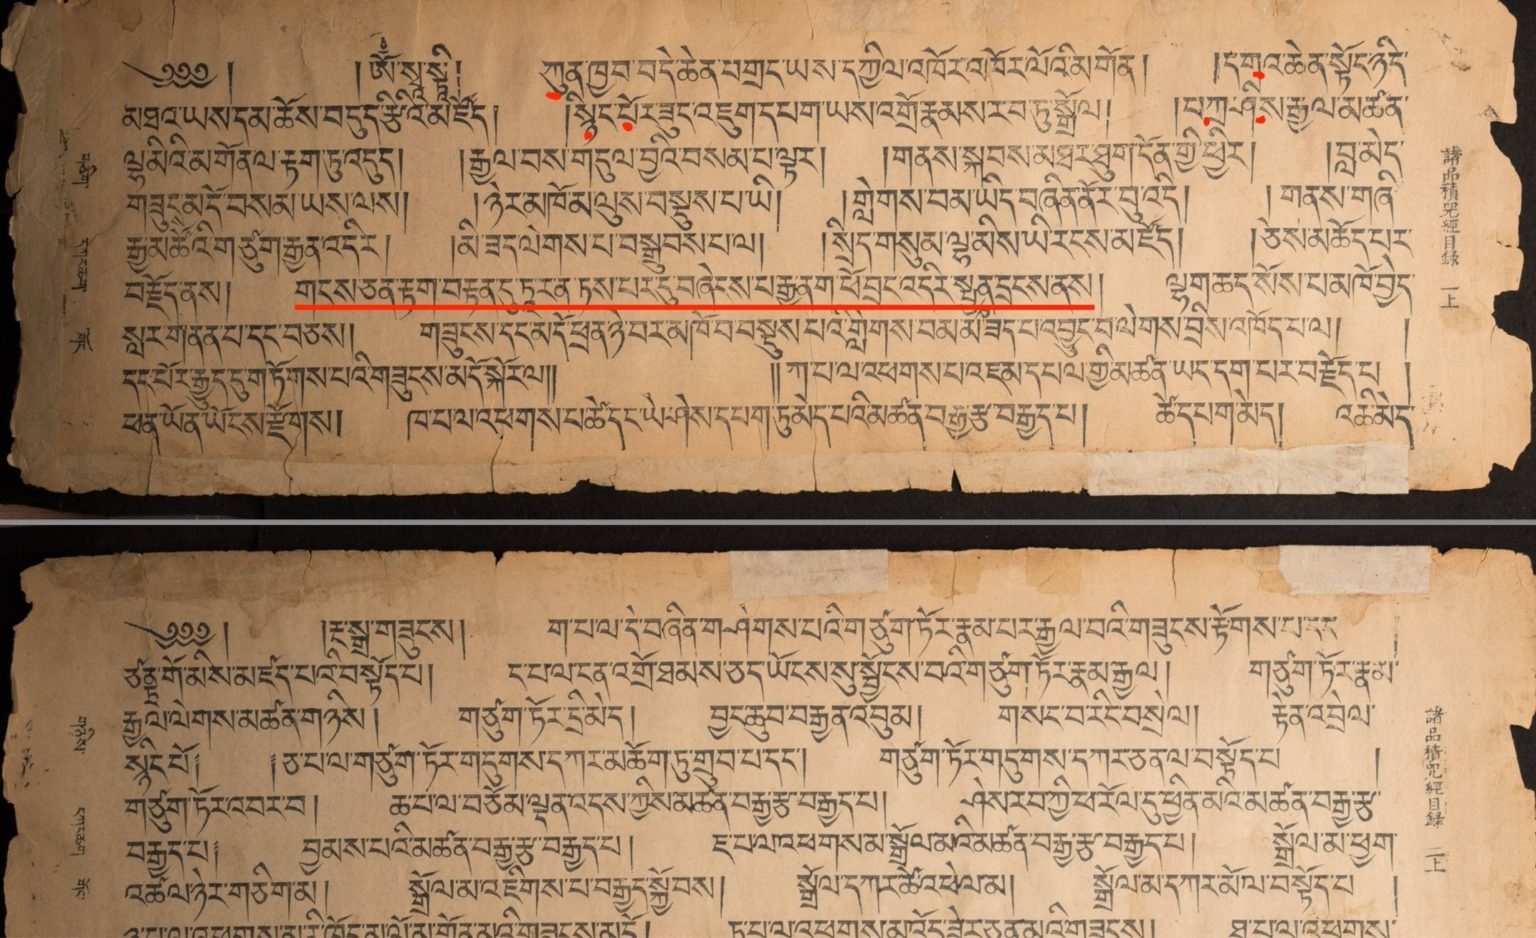 ༄༅༅། །ཨོཾ་སྭ་སྟི། ཀུན་ཁྱབ་བདེ་ཆེན་བགྲང་ཡས་དཀྱིལ་འཁོར་འཁོར་ལོའི་མགོན། །དགའ་ཆེན་སྟོང་ཉིད་
མཐའ་ཡས་དམ་ཆོས་བདུད་རྩིའི་མཛོད། །སྙིང་པོར་ཟུང་འཇུག་དཔག་ཡས་འགྲོ་རྣམས་རབ་ཏུ་སྒྲོལ། །པཀྵི་ས་རྒྱལ་མཚན་
ལྷ་མིའི་མགོན་ལ་རྟག་ཏུ་འདུད། །རྒྱལ་བས་གདུལ་བྱའི་བསམ་པ་ལྟར། །གནས་སྐབས་མཐར་ཐུག་དོན་གྱི་ཕྱིར། །བླ་མེད་
གཟུངས་མདོ་བསམ་ཡས་ལས། །ཉེར་མཁོ་མ་ལུས་བསྡུས་པ་ཡི། །གླེགས་བམ་ཡིད་བཞིན་ནོར་བུ་འདི། །གནས་གཞི་
རྒྱ་མཚོའི་གཙུག་རྒྱན་འདིར། །མི་ཟད་ལེགས་པ་བསྒྲུབས་པ་ལ། །སྲིད་གསུམ་ལྷ་མིས་ཡི་རངས་མཛོད། །ཅེས་མཆོད་པར་
བརྗོད་ནས། གངས་ཅན་རྟག་བརྟན་དུ་ཏུ་རན་ཏས་པར་དུ་བཞེངས་པ་རྒྱ་ནག་ཕོ་བྲང་འདིར་སྤྱན་དྲངས་ནས། ལྷག་ཆད་སོས་པ་མཁོ་བྱེད་
སླར་གནན་པ་དང་བཅས། གཟུངས་དང་མདོ་ཕྲན་ཉེ་བར་མཁོ་བ་བསྡུས་པའི་གླེགས་བམ་མི་ཟད་པ་འབྱུང་བ་ལེགས་བྲིས་འཁོད་པ་ལ། །
དང་པོར་རྒྱུད་དུ་གཏོགས་པའི་གཟུངས་མདོ་སྐོར་ལ།། །།ཀ་པ་ལ་འཕགས་པ་འཇམ་དཔལ་གྱི་མཚན་ཡང་དག་པར་བརྗོད་པ །
ཕན་ཡོན་ཡོངས་རྫོགས། ཁ་པ་ལ་འཕགས་པ་ཚེ་དང་ཡེ་ཤེས་དཔག་ཏུ་མེད་པའི་མཚན་བརྒྱ་རྩ་བརྒྱད་པ། ཚེ་དཔག་མེད། འཆི་མེད་
གཅིག
དཀར་ཆག
諸品積咒經目録 一上
༄༅༅། །རྔ་སྒྲ་གཟུངས། ག་པ་ལ་དེ་བཞིན་གཤེགས་པའི་གཙུག་ཏོར་རྣམ་པར་རྒྱལ་བའི་གཟུངས་རྟོགས་པ་དང་
ཙནྡྲ་གོ་མིས་མཛད་པའི་བསྟོད་པ། ང་པ་ལ་ངན་འགྲོ་ཐམས་ཅད་ཡོངས་སུ་སྦྱོངས་བའི་གཙུག་ཏོར་རྣམ་རྒྱལ། གཙུག་ཏོར་རྣམ་
རྒྱལ་ལེགས་མཚན་གཉིས། གཙུག་ཏོར་དྲི་མེད། བྱང་ཆུབ་བརྒྱན་འབུམ། གསང་བ་རིང་བསྲེལ། རྟེན་འབྲེལ་
སྙིང་པོ། །ཅ་པ་ལ་གཙུག་ཏོར་གདུགས་དཀར་མཆོག་ཏུ་གྲུབ་པ་དང། གཙུག་ཏོར་གདུགས་དཀར་ཅན་ལ་བསྟོད་པ །
གཙུག་ཏོར་འབར་བ། ཆ་པ་ལ་བཅོམ་ལྡན་འདས་ཀྱི་མཚན་བརྒྱ་རྩ་བརྒྱད་པ། ཤེས་རབ་ཀྱི་ཕ་རོལ་དུ་ཕྱིན་མའི་མཚན་བརྒྱ་རྩ་
བརྒྱད་པ། བྱམས་པའི་མཚན་བརྒྱ་རྩ་བརྒྱད་པ། ཇ་པ་ལ་འཕགས་མ་སྒྲོལ་མའི་མཚན་བརྒྱ་རྩ་བརྒྱད་པ། སྒྲོལ་མ་ཕྱག་
འཚལ་ཉེར་གཅིག་མ། སྒྲོལ་མ་འཇིགས་པ་བརྒྱད་སྐྱོབས། སྒྲོལ་དཀར་ཚེ་འཕེལ་མ། སྒྲོལ་མ་དཀར་མོ་ལ་བསྟོད་པ །
གཉིས
དཀར་ཆག
諸品積咒經目録 二上